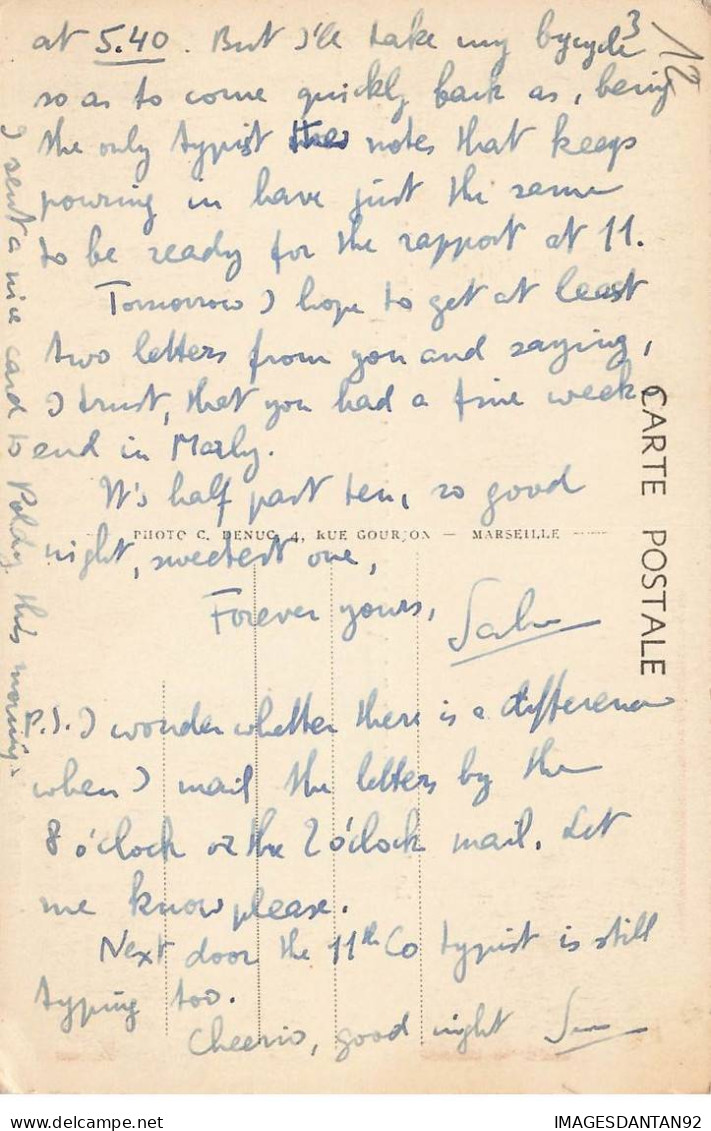 3
12
at 5.40. But I'll take my bycycle
so as to come quickly back as, being
the only typist notes that keeps
pouring in have just the same
to be ready for the rapport at 11.
Tomorrow I hope to get at least
two letters from you and saying,
I trust, that you had a fine week
end in Marly.
It's half past ten, so good
night, sweetest one,
Forever yours,
P.S. I wonder whether there is a difference
when I mail the letters by the
8 o'clock or the 2 o'clock mail. Let
me know please.
Next door the 11th Co typist is still
typing too.
Cheerio, good night
I sent a nice card to Poldy this morning.
PHOTO C. DENUC, 4, RUE GOURJON — MARSEILLE
CARTE POSTALE
IMAGESDANTAN92